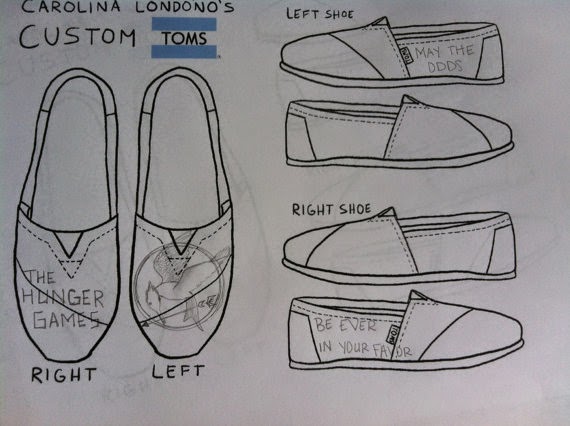 CAROLINA LONDONO'S
CUSTOM TOMS
THE
HUNGER
GAMES
RIGHT
LEFT
LEFT SHOE
TOMS
MAY THE
ODDS
RIGHT SHOE
BE EVER
IN YOUR FAVOR
TOMS